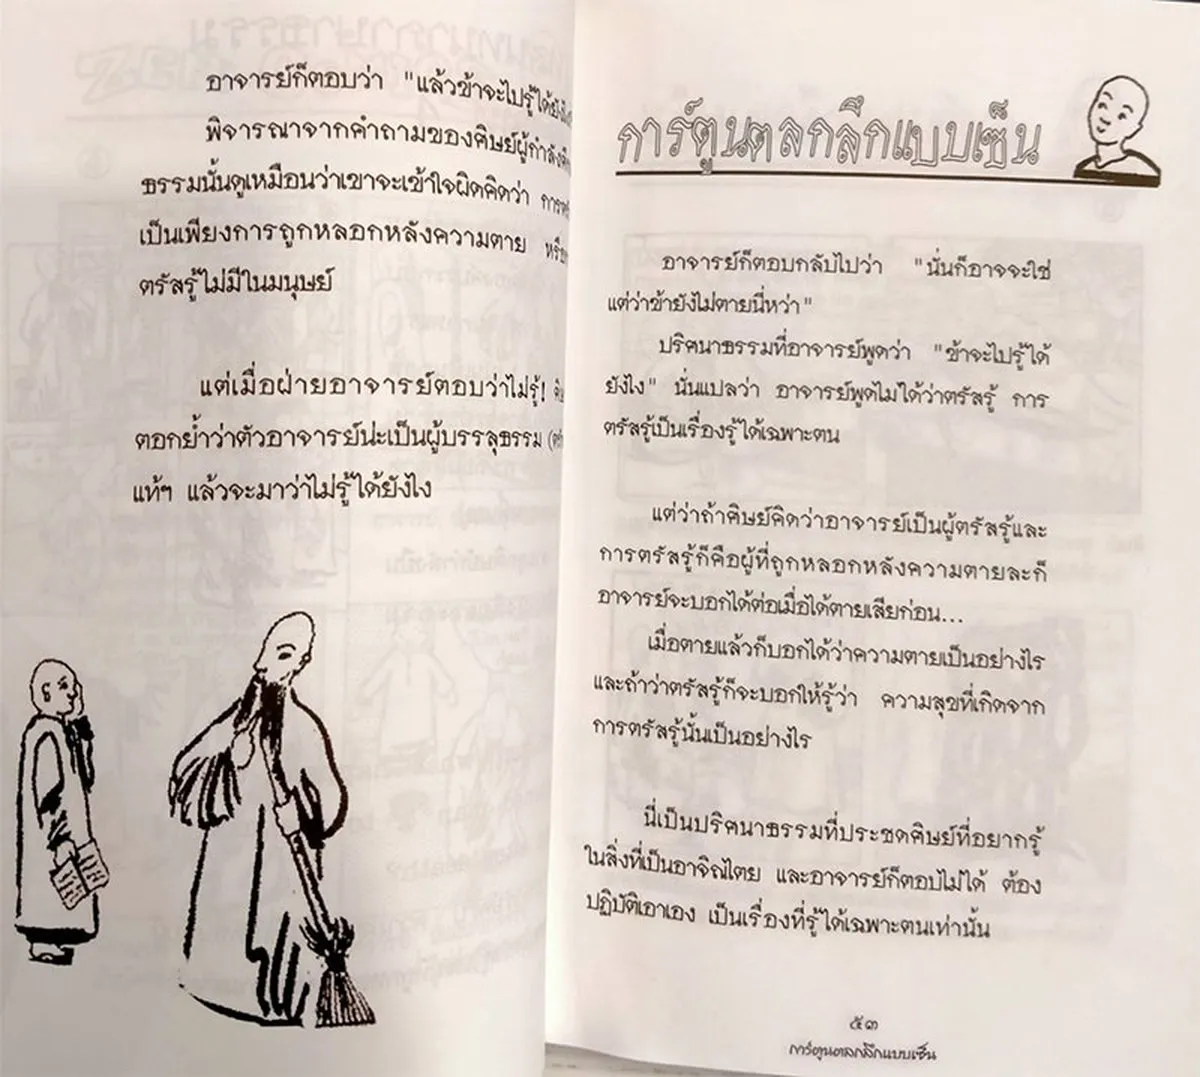 อาจารย์ก็ตอบว่า "แล้วข้าจะไปรู้ได้ยังไง
พิจารณาจากคำถามของศิษย์ผู้กำลัง
ธรรมนั้นดูเหมือนว่าเขาจะเข้าใจผิดคิดว่า การ
เป็นเพียงการถูกหลอกหลังความตาย
ตรัสรู้ไม่มีในมนุษย์
แต่เมื่อฝ่ายอาจารย์ตอบว่าไม่รู้!
ตอกย้ำว่าตัวอาจารย์น่ะเป็นผู้บรรลุธรรม
แท้ๆ แล้วจะมาว่าไม่รู้ได้ยังไง
การ์ตูนตลกลึกแบบเซ็น
อาจารย์ก็ตอบกลับไปว่า "นั่นก็อาจจะใช่
แต่ว่าข้ายังไม่ตายนี่หว่า"
ปริศนาธรรมที่อาจารย์พูดว่า "ข้าจะไปรู้ได้
ยังไง" นั่นแปลว่า อาจารย์พูดไม่ได้ว่าตรัสรู้ การ
ตรัสรู้เป็นเรื่องรู้ได้เฉพาะตน
แต่ว่าถ้าศิษย์คิดว่าอาจารย์เป็นผู้ตรัสรู้และ
การตรัสรู้ก็คือผู้ที่ถูกหลอกหลังความตายละก็
อาจารย์จะบอกได้ต่อเมื่อได้ตายเสียก่อน...
เมื่อตายแล้วก็บอกได้ว่าความตายเป็นอย่างไร
และถ้าว่าตรัสรู้ก็จะบอกให้รู้ว่า ความสุขที่เกิดจาก
การตรัสรู้นั้นเป็นอย่างไร
นี่เป็นปริศนาธรรมที่ประชดศิษย์ที่อยากรู้
ในสิ่งที่เป็นอาจิณไตย และอาจารย์ก็ตอบไม่ได้ ต้อง
ปฏิบัติเอาเอง เป็นเรื่องที่รู้ได้เฉพาะตนเท่านั้น
๕๓
การ์ตูนตลกลึกแบบเซ็น